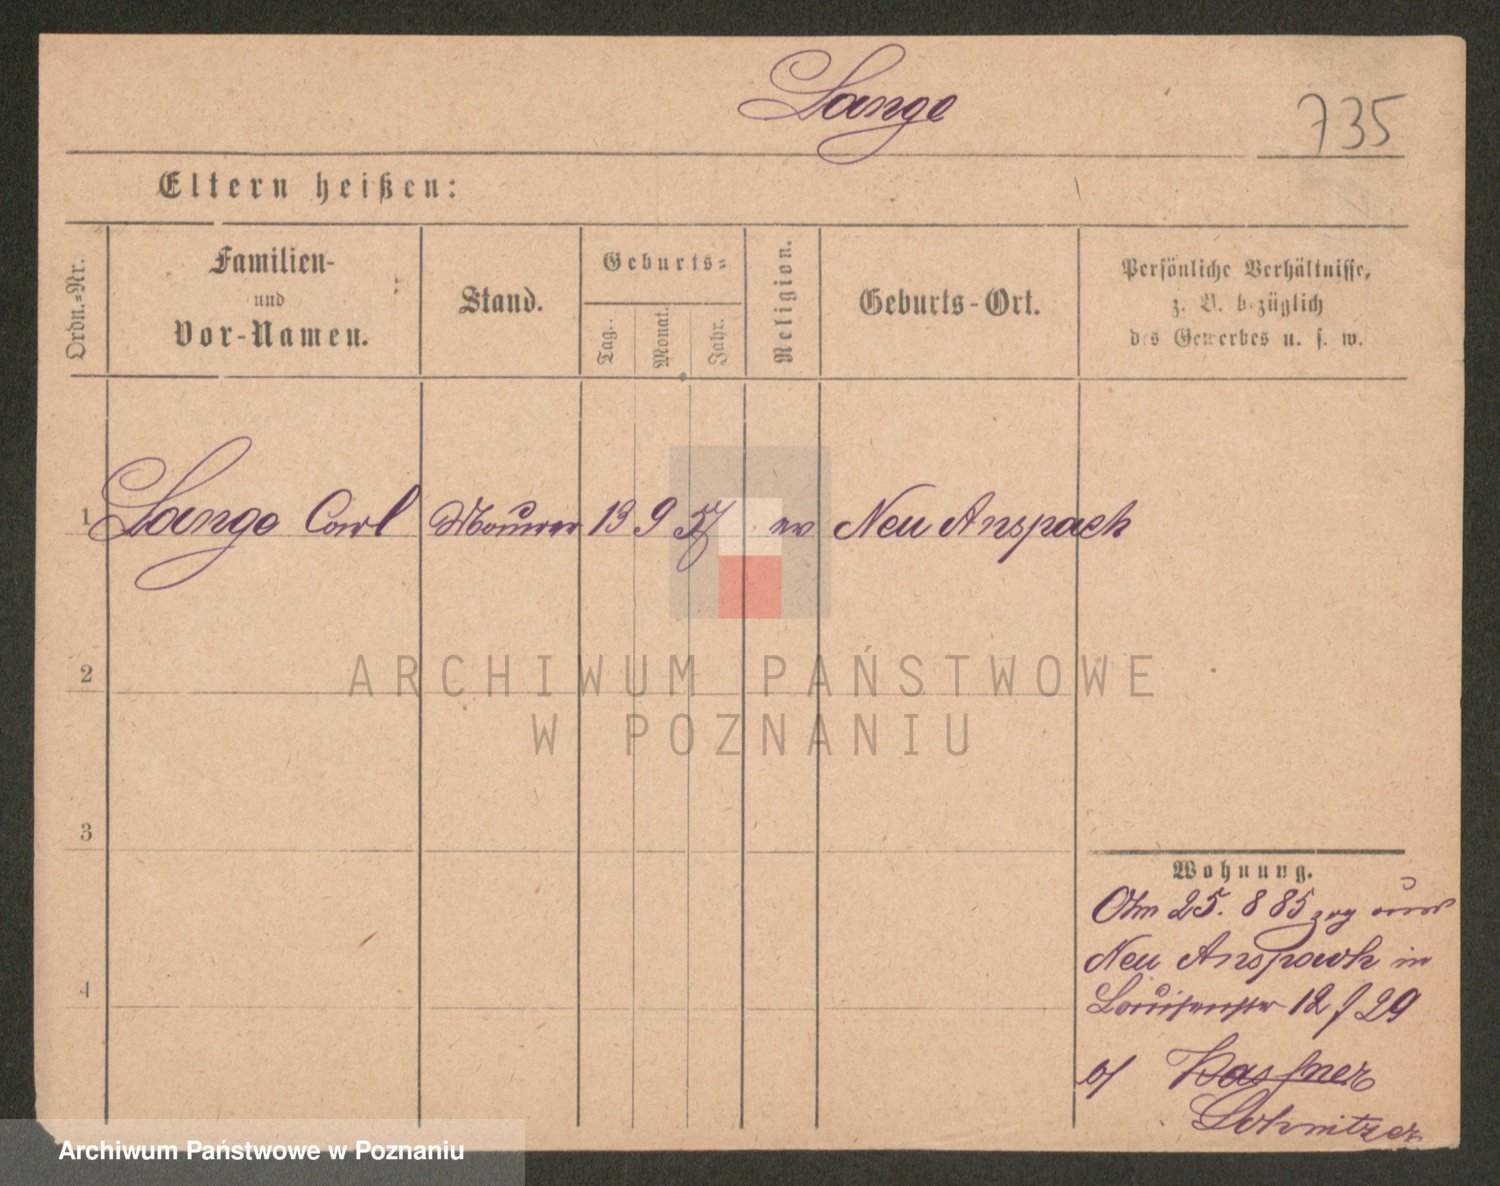 Lange
735
Eltern heißen:
Ordn.-Nr.
Familien-
und
Vor-Namen.
Stand.
Geburts-
Tag.
Monat.
Jahr.
Religion.
Geburts-Ort.
Persönliche Verhältnisse,
z. B. bezüglich
des Gewerbes u. s. w.
1 Lange Carl Maurer 13 9 57 ev Neu Anspach
2
ARCHIWUM PAŃSTWOWE
W POZNANIU
3
4
Wohnung.
Am 25. 8 85 zog aus
Neu Anspach in
Louisenstr 12 / 29
b/ Kastner
Schnitzer
Archiwum Państwowe w Poznaniu